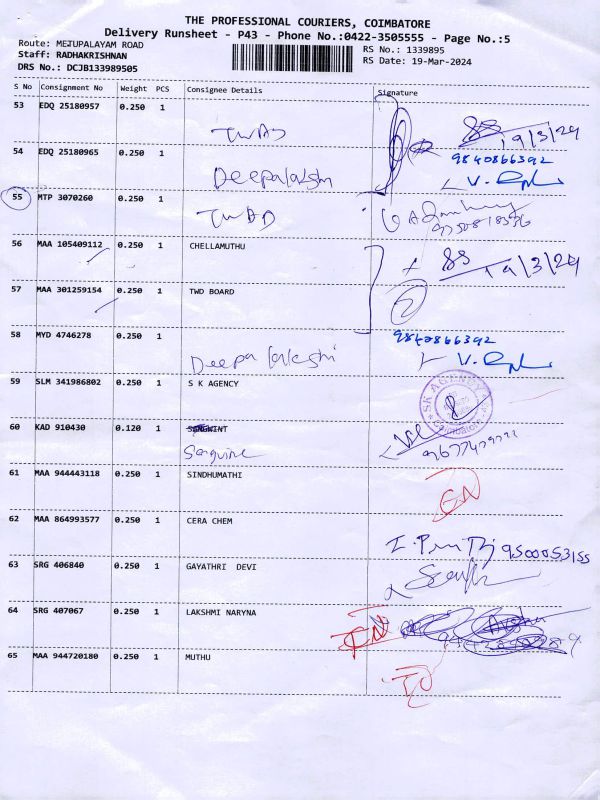 THE PROFESSIONAL COURIERS, COIMBATORE
Delivery Runsheet - P43 - Phone No.:0422-3505555 - Page No.:5
Route: METUPALAYAM ROAD
RS No.: 1339895
Staff: RADHAKRISHNAN
RS Date: 19-Mar-2024
DRS No.: DCJB133989505
S No Consignment No Weight PCS Consignee Details Signature
53 EDQ 25180957 0.250 1
TWAD 19/3/24
54 EDQ 25180965 0.250 1 9840866392
Deepalakshmi V.
55 MTP 3070260 0.250 1
TWAD
56 MAA 105409112 0.250 1 CHELLAMUTHU
19/3/24
57 MAA 301259154 0.250 1 TWD BOARD
58 MYD 4746278 0.250 1 9840866392
Deepa lakshmi V.
59 SLM 341986802 0.250 1 S K AGENCY
SK AGENCY
Coimbatore
60 KAD 910430 0.120 1
Sanguine
61 MAA 944443118 0.250 1 SINDHUMATHI
62 MAA 864993577 0.250 1 CERA CHEM
9500053155
63 SRG 406840 0.250 1 GAYATHRI DEVI
64 SRG 407067 0.250 1 LAKSHMI NARYNA
65 MAA 944720180 0.250 1 MUTHU